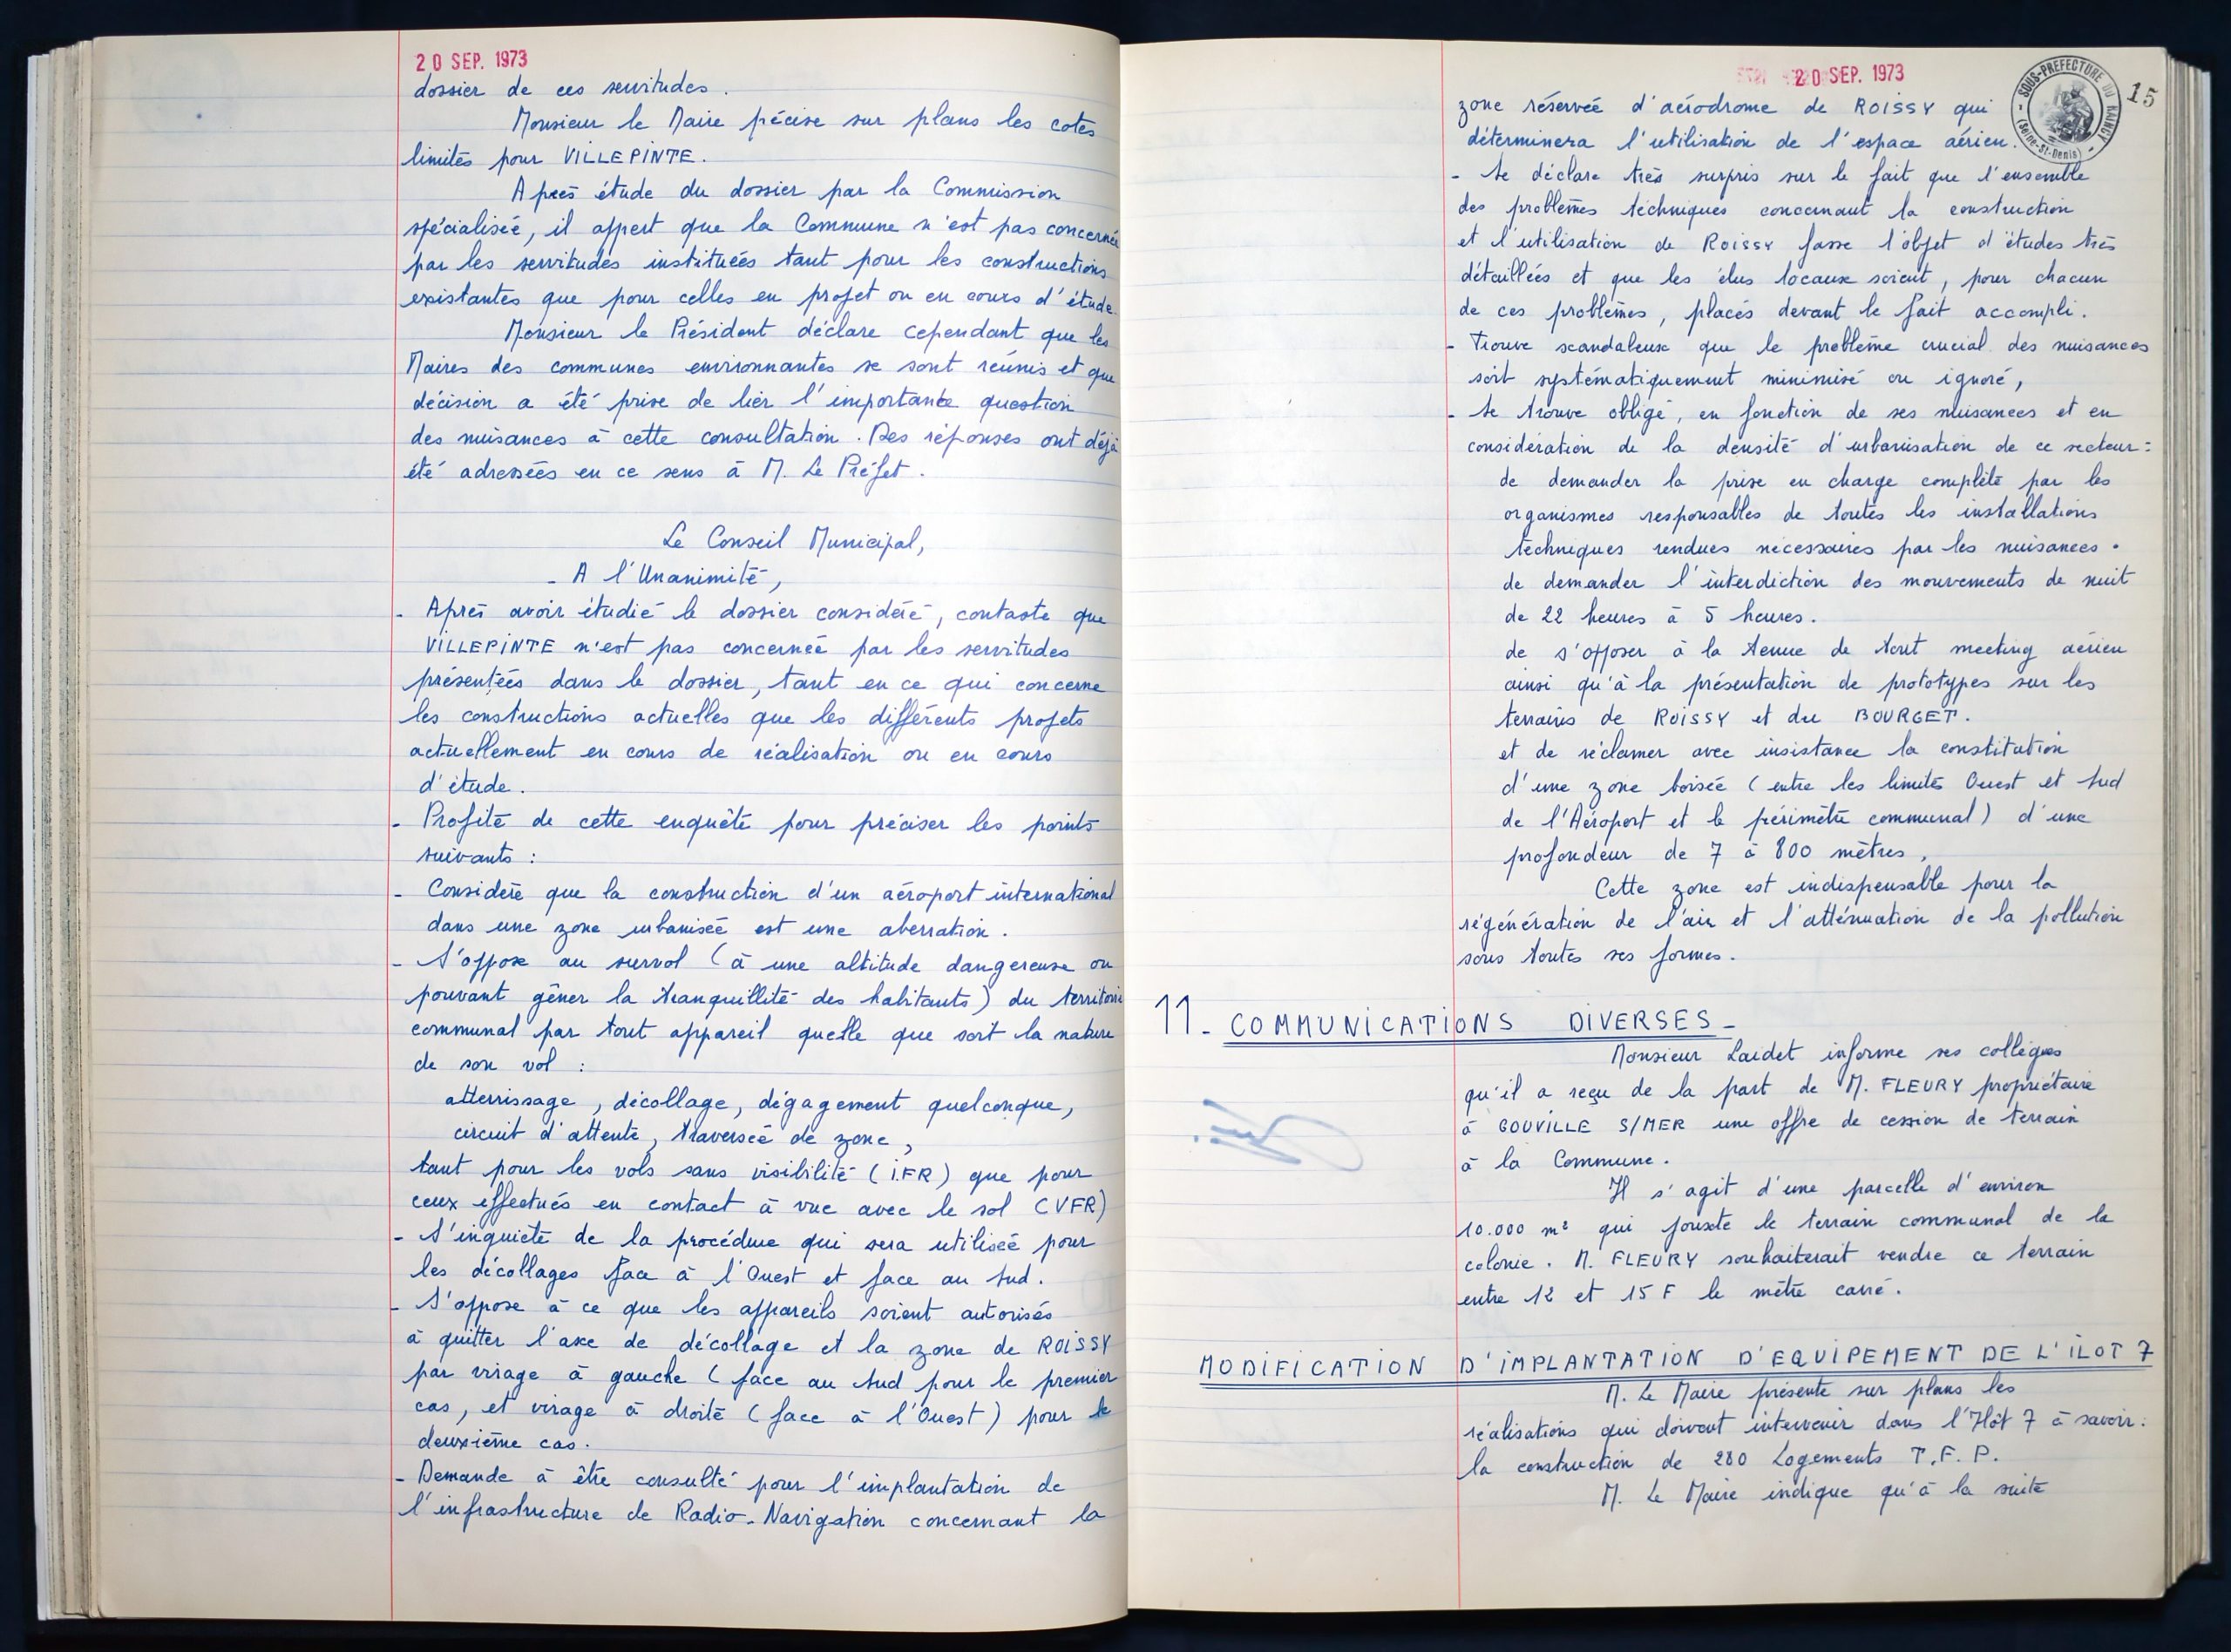 20 SEP. 1973
dossier de ces servitudes.
Monsieur le Maire précise sur plans les cotes
limites pour VILLEPINTE.
Après étude du dossier par la Commission
spécialisée, il appert que la Commune n'est pas concernée
par les servitudes instituées tant pour les constructions
existantes que pour celles en projet ou en cours d'étude.
Monsieur le Président déclare cependant que les
Maires des communes environnantes se sont réunis et que
décision a été prise de lier l'importante question
des nuisances à cette consultation. Des réponses ont déjà
été adressées en ce sens à M. Le Préfet.
Le Conseil Municipal,
- A l'Unanimité,
- Après avoir étudié le dossier considéré, contaste que
VILLEPINTE n'est pas concernée par les servitudes
présentées dans le dossier, tant en ce qui concerne
les constructions actuelles que les différents projets
actuellement en cours de réalisation ou en cours
d'étude.
- Profite de cette enquête pour préciser les points
suivants :
- Considère que la construction d'un aéroport international
dans une zone urbanisée est une aberration.
- S'oppose au survol (à une altitude dangereuse ou
pouvant gêner la tranquillité des habitants) du territoire
communal par tout appareil quelle que soit la nature
de son vol :
atterrissage, décollage, dégagement quelconque,
circuit d'attente, traversée de zone,
tant pour les vols sans visibilité (I.FR) que pour
ceux effectués en contact à vue avec le sol (VFR)
- S'inquiète de la procédure qui sera utilisée pour
les décollages face à l'Ouest et face au Sud.
- S'oppose à ce que les appareils soient autorisés
à quitter l'axe de décollage et la zone de ROISSY
par virage à gauche (face au Sud pour le premier
cas, et virage à droite (face à l'Ouest) pour le
deuxième cas.
- Demande à être consulté pour l'implantation de
l'infrastructure de Radio-Navigation concernant la
20 SEP. 1973
SOUS-PREFECTURE DU RAINCY
(Seine-St-Denis)
15
zone réservée d'aérodrome de ROISSY qui
déterminera l'utilisation de l'espace aérien.
- Se déclare très surpris sur le fait que l'ensemble
des problèmes techniques concernant la construction
et l'utilisation de ROISSY fasse l'objet d'études très
détaillées et que les élus locaux soient, pour chacun
de ces problèmes, placés devant le fait accompli.
- Trouve scandaleux que le problème crucial des nuisances
soit systématiquement minimisé ou ignoré,
- Se trouve obligé, en fonction de ses nuisances et en
considération de la densité d'urbanisation de ce secteur :
de demander la prise en charge complète par les
organismes responsables de toutes les installations
techniques rendues nécessaires par les nuisances.
de demander l'interdiction des mouvements de nuit
de 22 heures à 5 heures.
de s'opposer à la tenue de tout meeting aérien
ainsi qu'à la présentation de prototypes sur les
terrains de ROISSY et du BOURGET.
et de réclamer avec insistance la constitution
d'une zone boisée (entre les limites Ouest et Sud
de l'Aéroport et le périmètre communal) d'une
profondeur de 7 à 800 mètres,
Cette zone est indispensable pour la
régénération de l'air et l'atténuation de la pollution
sous toutes ses formes.
11- COMMUNICATIONS DIVERSES-
Monsieur Laidet informe ses collègues
qu'il a reçu de la part de M. FLEURY propriétaire
à GOUVILLE S/MER une offre de cession de terrain
à la Commune.
Il s'agit d'une parcelle d'environ
10.000 m² qui jouxte le terrain communal de la
colonie. M. FLEURY souhaiterait vendre ce terrain
entre 12 et 15 F le mètre carré.
MODIFICATION D'IMPLANTATION D'EQUIPEMENT DE L'ILOT 7
M. Le Maire présente sur plans les
réalisations qui doivent intervenir dans l'Ilôt 7 à savoir :
la construction de 280 Logements T.F.P.
M. Le Maire indique qu'à la suite